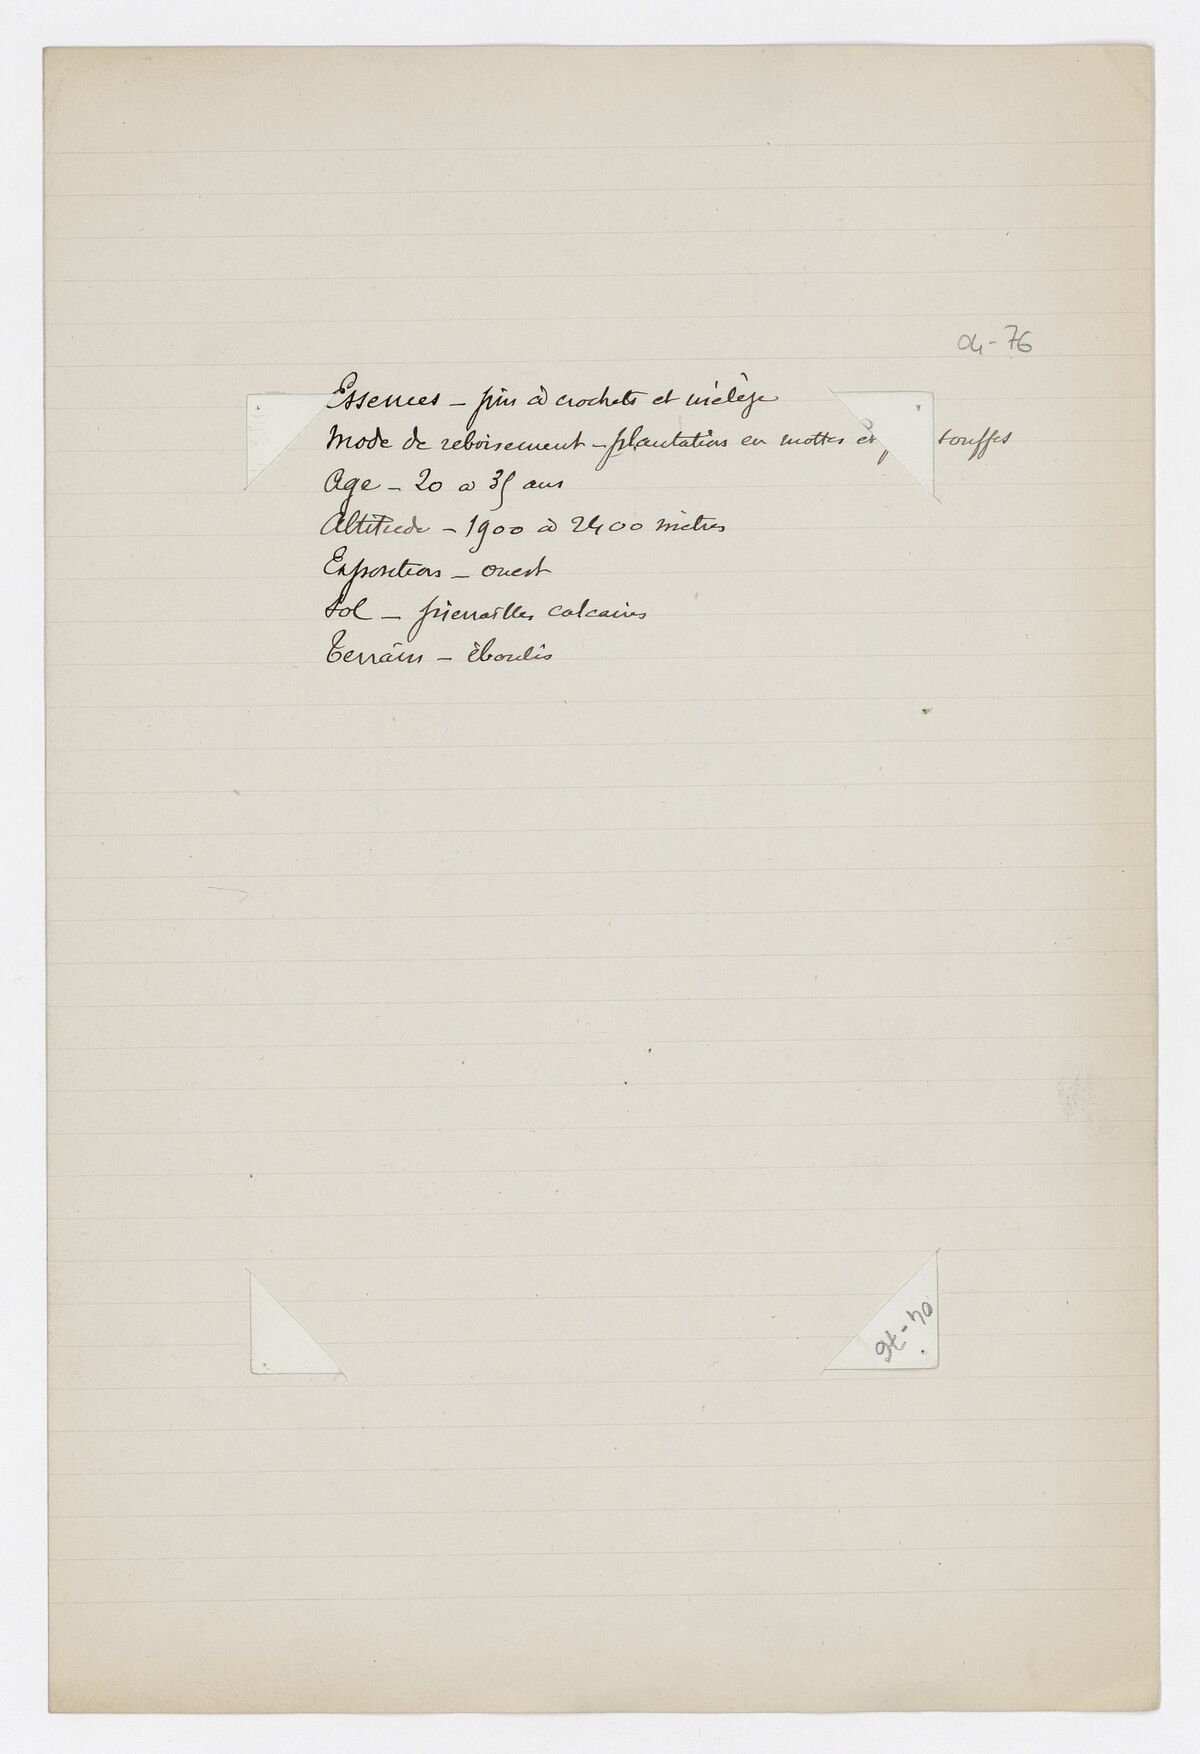 04-76
Essences - pin à crochets et mélèze
Mode de reboisement - plantations en mottes et touffes
Age - 20 a 35 ans
Altitude - 1900 à 2400 mètres
Exposition - ouest
Sol - pierrailles calcaires
Terrain - éboulis
04-76